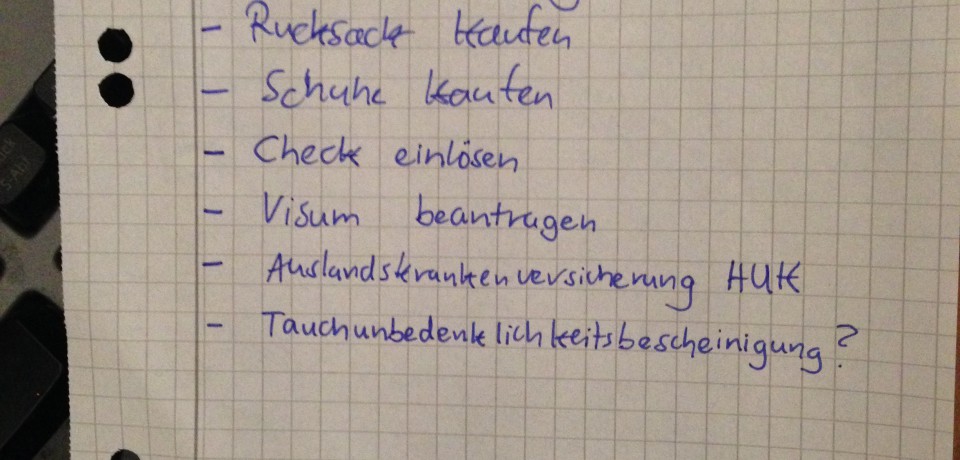 - Rucksack kaufen
- Schuhe kaufen
- Check einlösen
- Visum beantragen
- Auslandskrankenversicherung HUK
- Tauchunbedenklichkeitsbescheinigung?